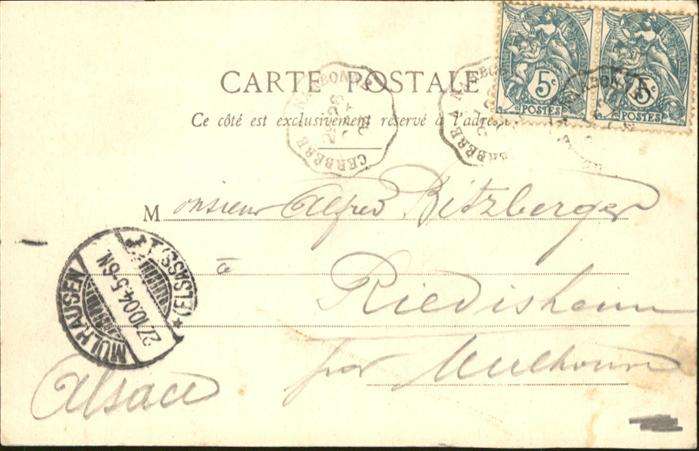 CARTE POSTALE
Ce côté est exclusivement réservé à l'adresse
5c 5c
POSTES POSTES
CERBERE A NARBONNE
CERBERE A NARBONNE
Monsieur Alfred Bitzberger
à Riedisheim
par Mulhouse
Alsace
MÜLHAUSEN
(ELSASS) 1
27.10.04.5-6N.